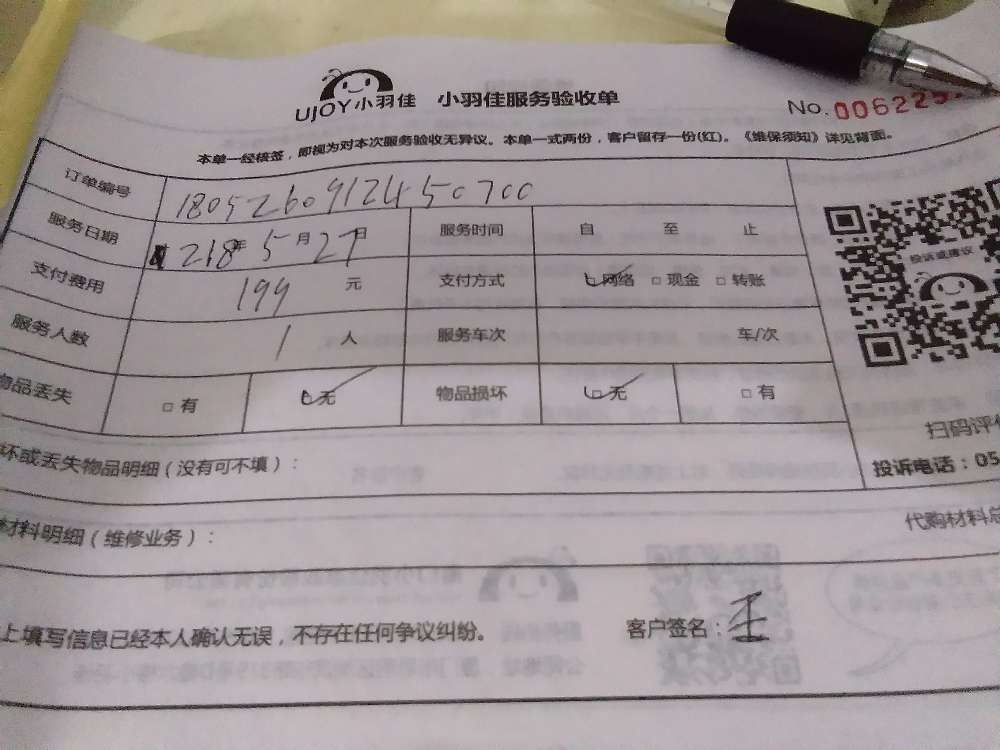 UJOY小羽佳 小羽佳服务验收单
No. 006225
本单一经核签，即视为对本次服务验收无异议。本单一式两份，客户留存一份(红)。《维保须知》详见背面。
订单编号 1805260912450700
服务日期 218年 5月 27日 服务时间 自 至 止
支付费用 199 元 支付方式 网络 □现金 □转账
服务人数 1 人 服务车次 车/次
物品丢失 □有 □无 物品损坏 □无 □有
投诉或建议
扫码评价
坏或丢失物品明细（没有可不填）：
投诉电话：05
材料明细（维修业务）：
代购材料总
上填写信息已经本人确认无误，不存在任何争议纠纷。 客户签名：